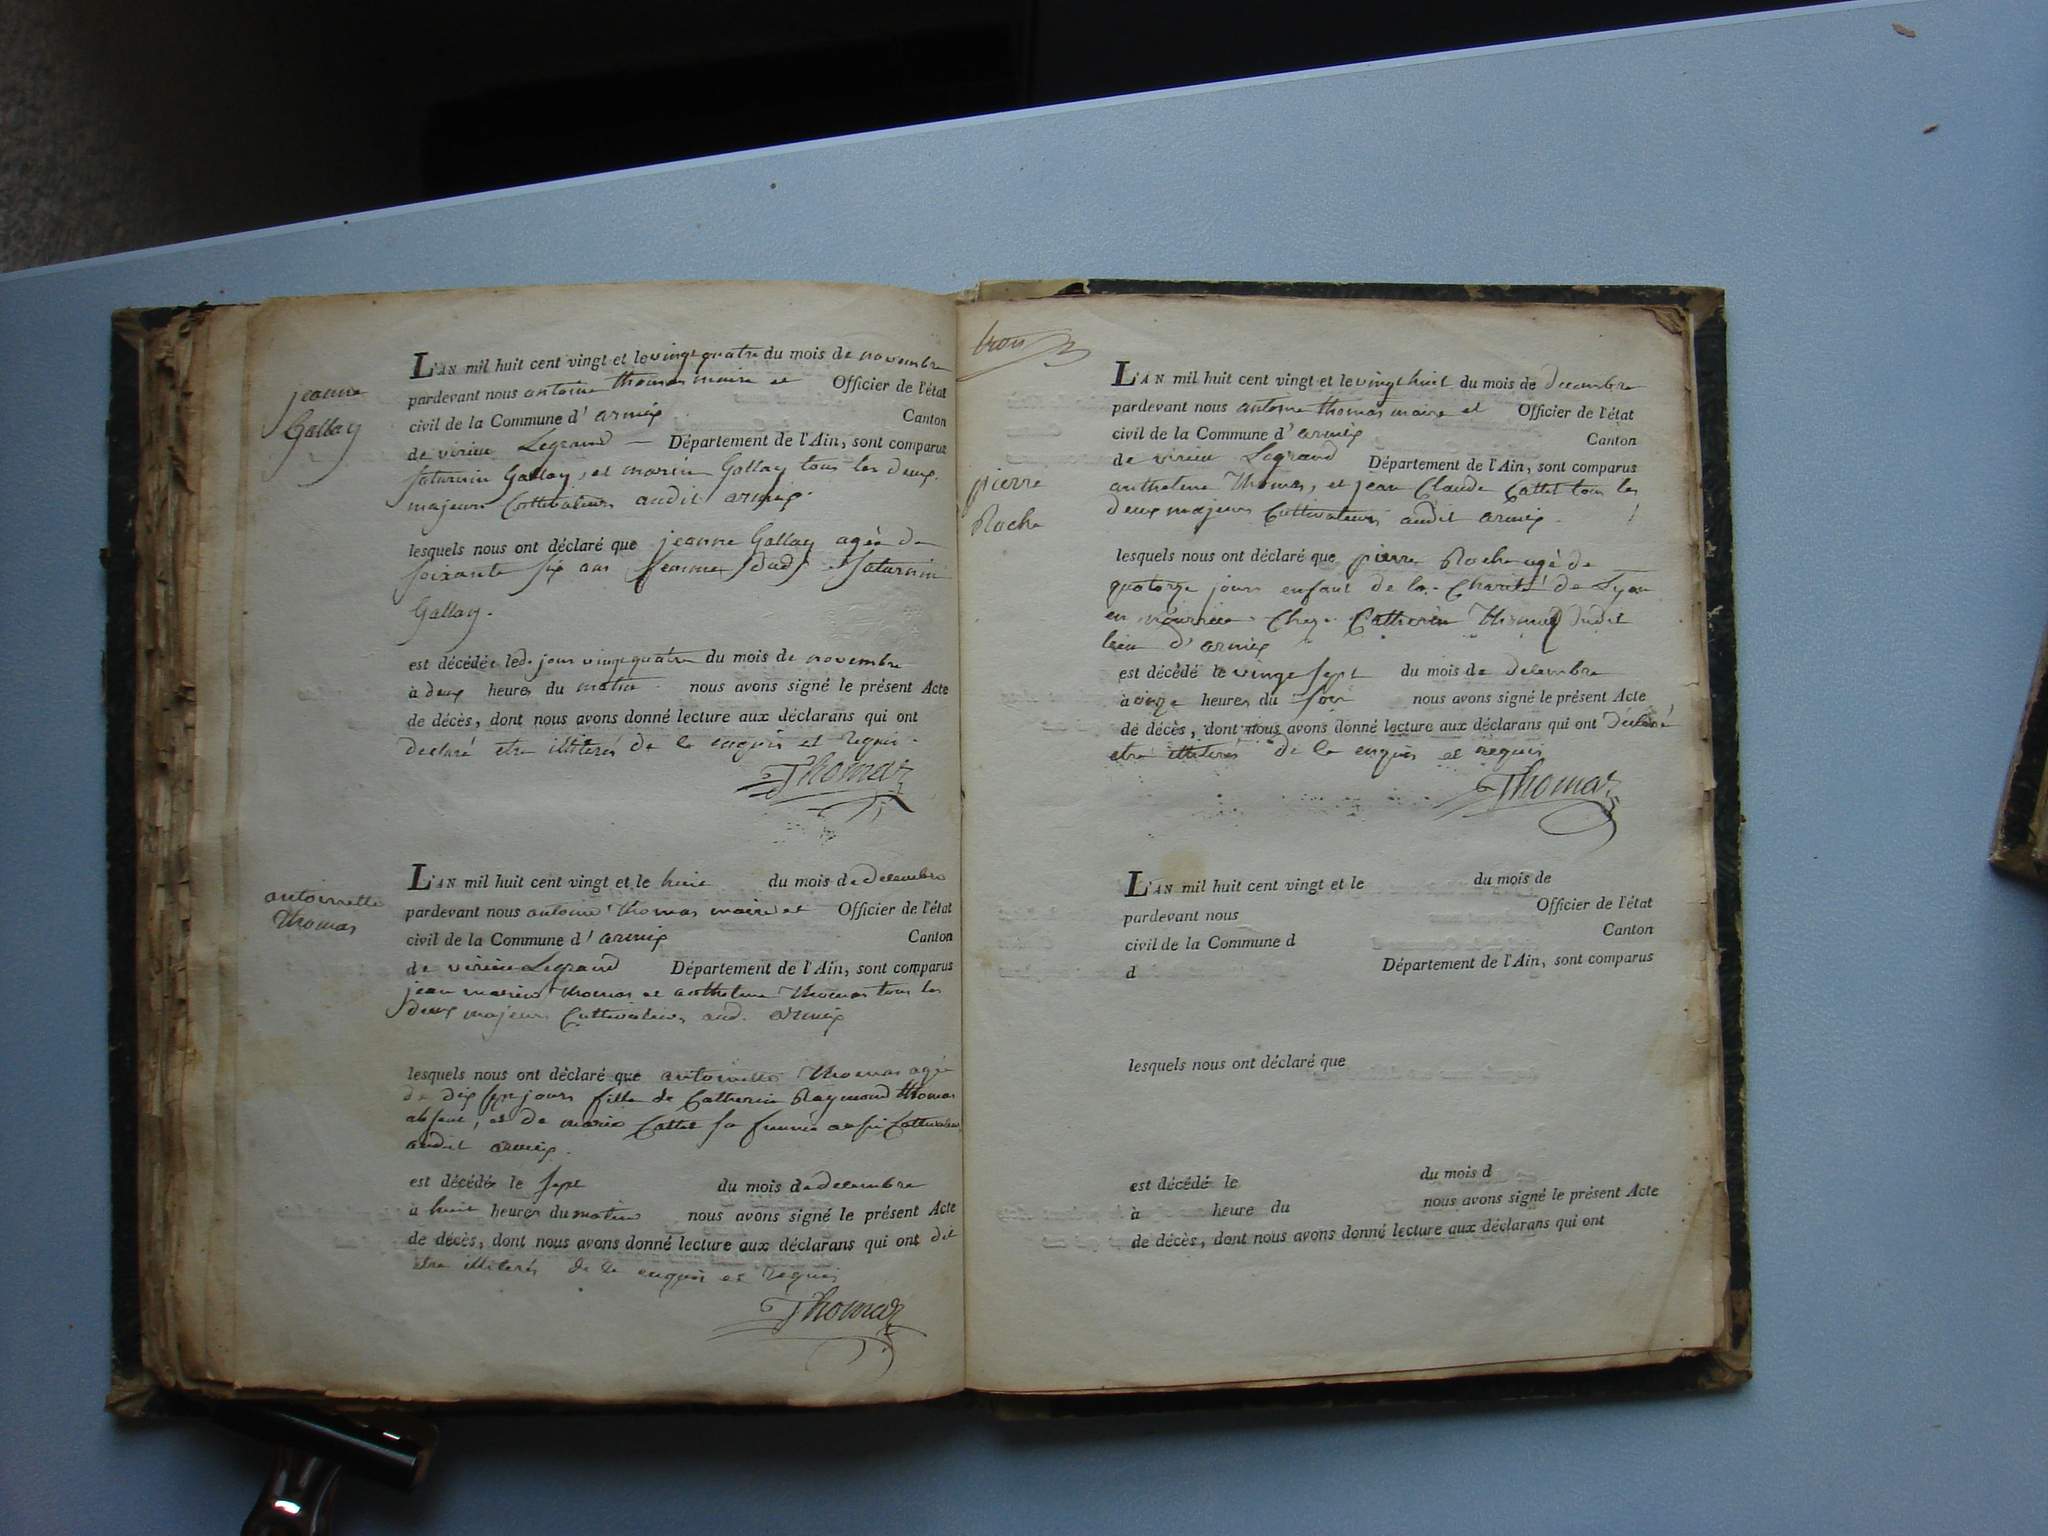 jeanne
Gallay
L'AN mil huit cent vingt et le vingt quatre du mois de novembre
pardevant nous antoine thomas maire et Officier de l'état
civil de la Commune d'armix Canton
de virieu Legrand — Département de l'Ain, sont comparus
saturnin Gallay, et marin Gallay tous les deux
majeurs Cultivateurs audit armix.
lesquels nous ont déclaré que jeanne Gallay agée de
soixante six ans femme dud. Saturnin
Gallay.
est décédée le d. jour vingt quatre du mois de novembre
à deux heures du matin. nous avons signé le présent Acte
de décès, dont nous avons donné lecture aux déclarans qui ont
declaré etre illiterés de le enquis et requis.
Thomas
antoinette
thomas
L'AN mil huit cent vingt et le huit du mois de decembre
pardevant nous antoine thomas maire et Officier de l'état
civil de la Commune d'armix Canton
de virieu Legrand Département de l'Ain, sont comparus
jean marin thomas et anthelme thomas tous les
deux majeurs Cultivateurs aud. armix
lesquels nous ont déclaré que antoinette thomas agée
de dix sept jours fille de Catherin Raymond thomas
absent, et de marie Cattet sa femme aussi Cultivateur
audit armix.
est décédée le sept du mois de decembre
à huit heures du matin nous avons signé le présent Acte
de décès, dont nous avons donné lecture aux déclarans qui ont dit
etre illiterés de le enquis et requis
Thomas
trois
pierre
Roche
L'AN mil huit cent vingt et le vingt huit du mois de decembre
pardevant nous antoine thomas maire et Officier de l'état
civil de la Commune d'armix Canton
de virieu Legrand Département de l'Ain, sont comparus
anthelme Thomas, et jean Claude Cattet tous les
deux majeurs Cultivateurs audit armix.
lesquels nous ont déclaré que pierre Roche agé de
quatorze jours enfant de la Charité de Lyon
en nourrice Chez Catherin Thomas dudit
lieu d'armix
est décédé le vingt sept du mois de decembre
à onze heures du soir nous avons signé le présent Acte
de décès, dont nous avons donné lecture aux déclarans qui ont déclaré
etre illiterés de le enquis et requis
Thomas
L'AN mil huit cent vingt et le du mois de
pardevant nous Officier de l'état
civil de la Commune d Canton
d Département de l'Ain, sont comparus
lesquels nous ont déclaré que
est décédé le du mois d
à heure du nous avons signé le présent Acte
de décès, dont nous avons donné lecture aux déclarans qui ont